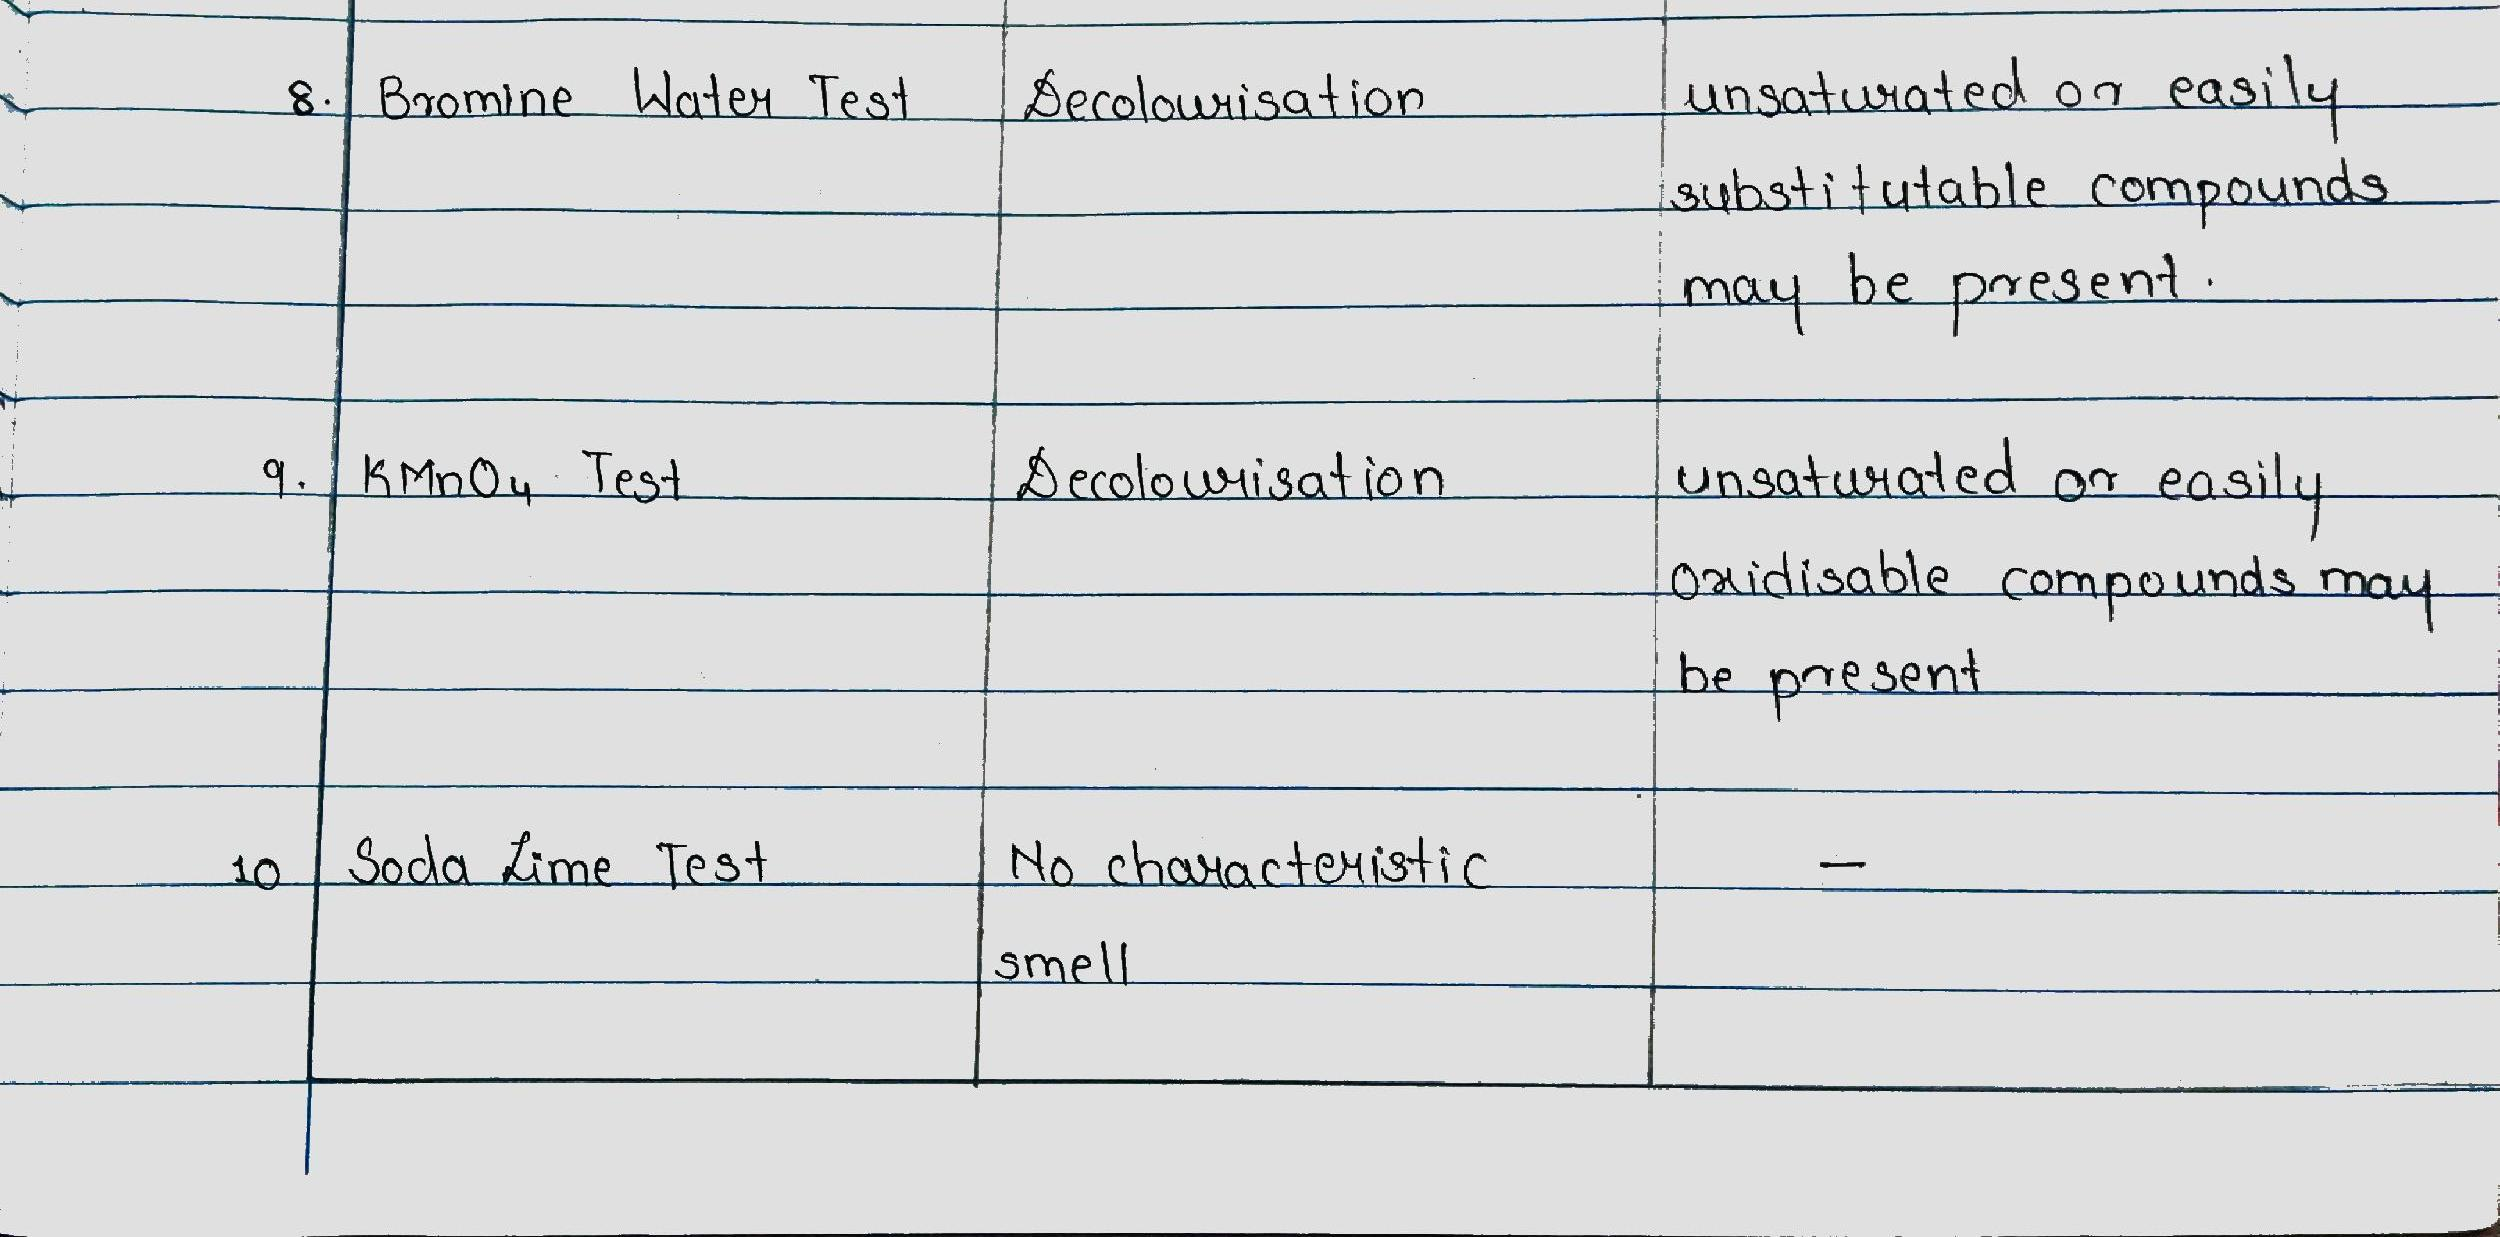 8. Bromine Water Test Decolourisation unsaturated or easily
substitutable compounds
may be present.
9. KMnO4 Test Decolourisation unsaturated or easily
oxidisable compounds may
be present
10 Soda Lime Test No characteristic —
smell